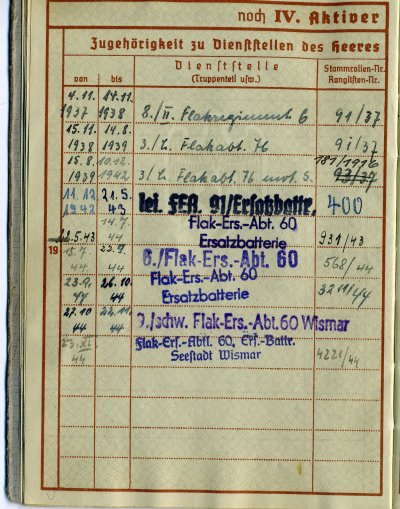 noch IV. Aktiver
Zugehörigkeit zu Dienststellen des Heeres
von bis Dienststelle (Truppenteil usw.) Stammrollen-Nr. Ranglisten-Nr.
4.11. 14.11.
1937 1938 8./II. Flakregiment 6 91/37
15.11. 14.8.
1938 1939 3./l. Flakabt. 76 91/37
15.8. 10.12. 181/1916
1939 1942 3./l. Flakabt. 76 mot. S. 93/37
11.12. 21.5. lei. FEA. 91/Ersatzbattr. 400
1942 43
14.7. Flak-Ers.-Abt. 60
22.5.43 44 Ersatzbatterie 931/43
19 15.7. 22.9. 6./Flak-Ers.-Abt. 60 568/44
44 44
23.9. 26.10. Flak-Ers.-Abt. 60 3211/44
44 44 Ersatzbatterie
27.10 22.11. 9./schw. Flak-Ers.-Abt. 60 Wismar
44 44
23.XI. Flak-Ers.-Abtl. 60, Ers.-Battr. 4221/44
44 Seestadt Wismar